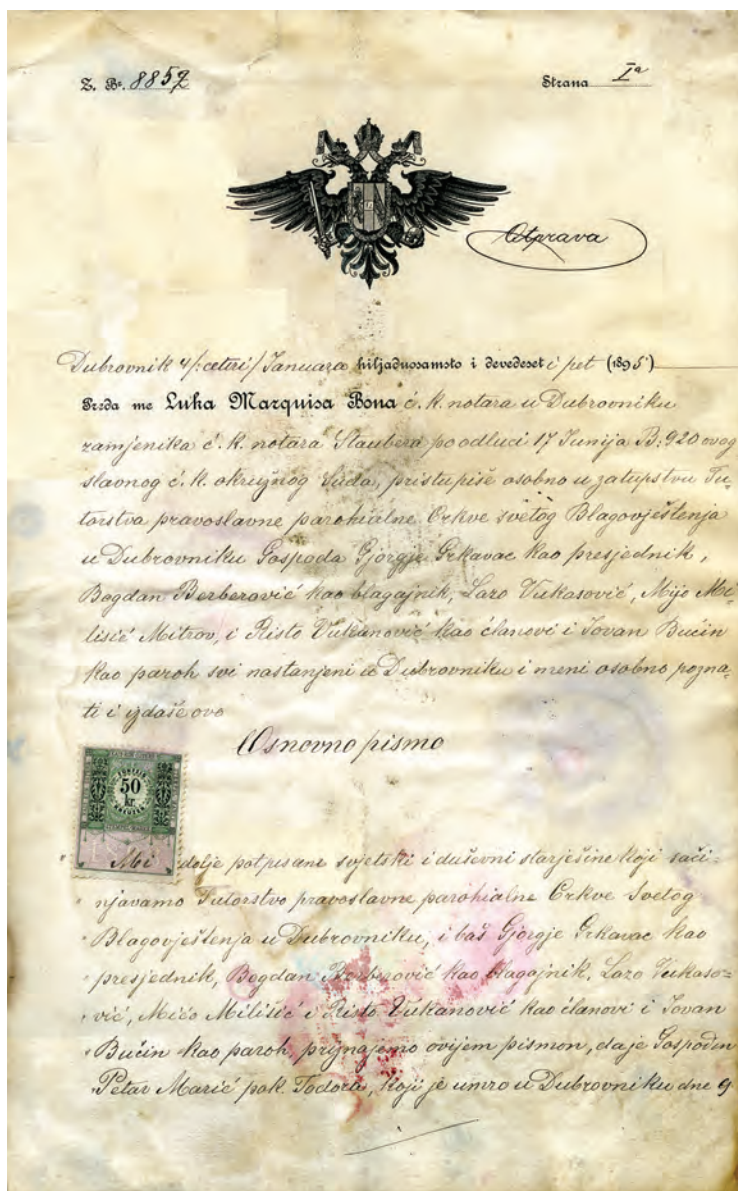 Z. Br. 8852
Strana Iª
Otprava
Dubrovnik 4/:cetiri/ Januara hiljaduosamsto i devedeset i pet (1895)
Preda me Luka Marquisa Bona ć. k. notara u Dubrovniku
zamjenika ć. k. notara Staubera po odluci 17 Junija B: 920 ovog
slavnog ć. k. okružnog Suda, pristupiše osobno u zatupstvu Tu-
torstva pravoslavne parohialne Crkve svetog Blagovještenja
u Dubrovniku Gospoda Gjorgje Grkavac kao presjednik,
Bogdan Berberović kao blagajnik, Lazo Vukasović, Mijo Mi-
lisić Mitrov, i Risto Vukanović kao članovi i Jovan Bućin
kao paroh svi nastanjeni u Dubrovniku i meni osobno pozna-
ti i izdaše ovo
Osnovno pismo
50
kr.
Mi dolje potpisane svjetski i duševni starješine koji sači-
njavamo Tutorstvo pravoslavne parohialne Crkve Svetog
Blagovještenja u Dubrovniku, i baš Gjorgje Grkavac kao
presjednik, Bogdan Berberović kao blagajnik, Lazo Vukaso-
vić, Mićo Milišić i Risto Vukanović kao članovi i Jovan
Bućin kao paroh, priznajemo ovijem pismon, da je Gospodin
Petar Marić pok. Todora, koji je umro u Dubrovniku dne 9